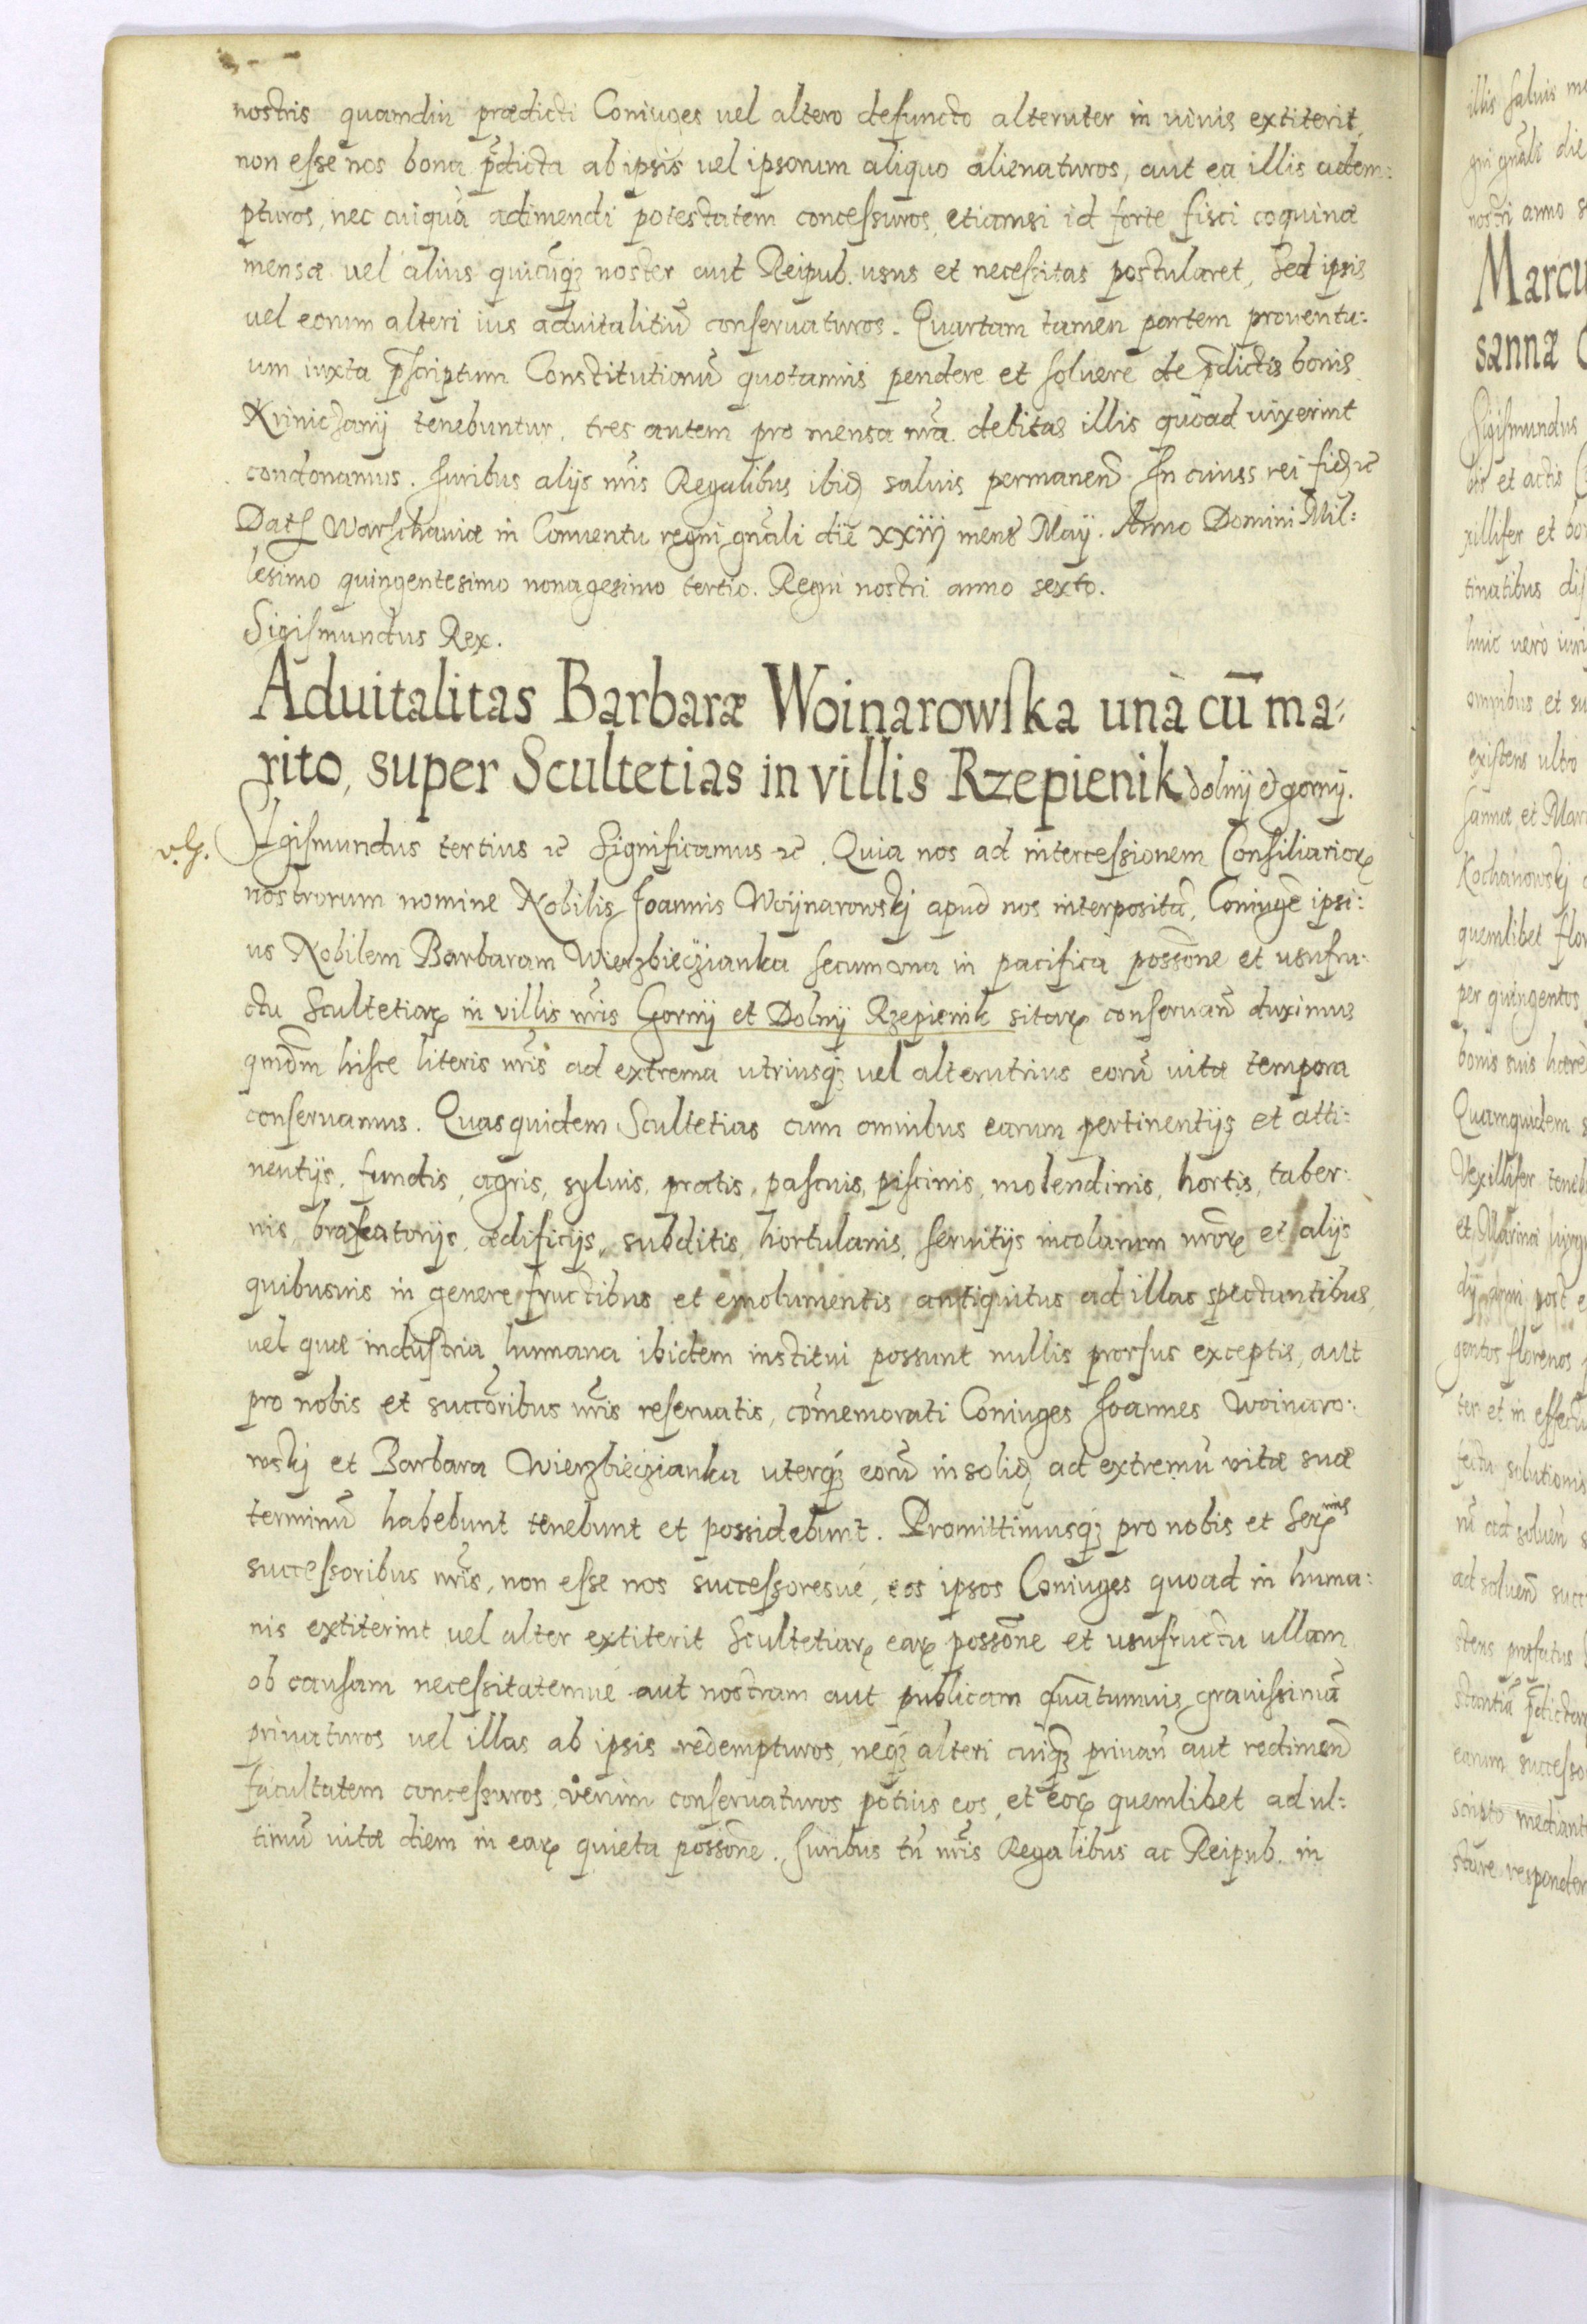 nostris quamdiu prædicti Coniuges vel altero defuncto alteruter in vivis extiterit,
non esse nos bona p̄dicta ab ipsis vel ipsorum aliquo alienaturos, aut ea illis adem:
pturos, nec cuiquā adimendi potestatem concessuros, etiamsi id forte fisci coquinæ
mensæ vel alius quicūqꝫ noster aut Reipub. usus et necessitas postularet, Sed ipsis
vel eorum alteri ius advitalitiū conservaturos. Quartam tamen partem proventu:
um iuxta p̄scriptum Constitutionū quotannis pendere et solvere de p̄dictis bonis
tenebuntur, tres autem pro mensa nr̄a debitas illis quoad vixerint
condonamus. Iuribus alijs nr̄is Regalibus ibid salvis permanen̄. In cuius rei fid ꝛc̄
Dat Warschaviæ in Conventu regni gnāli die XXIIJ mens̄ Maÿ. Anno Domini Mil:
lesimo quingentesimo nonagesimo tertio. Regni nostri anno sexto.
Sigismundus Rex.
Aduitalitas Barbaræ Woinarowska unà cū ma:
rito, super Scultetias in villis Rzepienik dolnÿ et gornÿ.
v. G.
Sigismundus tertius ꝛc̄ Significamus ꝛc̄. Quia nos ad intercessionem Consiliarioꝝ
nostrorum nomine Nobilis Joannis Woÿnarowskj apud nos interpositā, Coniugē ipsi:
us Nobilem Barbaram Wierzbiecziankа secum una in pacifica possōne et usufru:
ctu Scultetiaꝝ in villis nr̄is Gornÿ et Dolnÿ Rzepienik sitaꝝ conservan̄ duximus
qmōdm hisce literis nr̄is ad extrema utriusqꝫ vel alterutrius eorū vitæ tempora
conservamus. Quasquidem Scultetias cum omnibus earum pertinentijs et atti:
nentijs, fundis, agris, sylvis, pratis, pascuis, piscinis, molendinis, hortis, taber:
nis, braxeatorijs, ædificijs, subditis, hortulanis, servitijs incolarum nr̄oꝝ et alijs
quibusvis in genere fructibus et emolumentis antiquitus ad illas spectantibus,
vel quæ industria humana ibidem institui possunt nullis prorsus exceptis, aut
pro nobis et succōribus nr̄is reservatis, cōmemorati Coniuges Joannes Woinaro:
wskj et Barbara Wierzbieczianka uterqꝫ eorū insolid ad extremū vitæ suæ
terminū habebunt tenebunt et possidebunt. Promittimusqꝫ pro nobis et Ser
successoribus nr̄is, non esse nos successoresve, eos ipsos Coniuges quoad in huma:
nis extiterint vel alter extiterit Scultetiaꝝ eaꝝ possōne et usufructu ullam
ob causam necessitatemve aut nostram aut publicam quātumvis gravissimā
privaturos vel illas ab ipsis redempturos, neqꝫ alteri cuiqꝫ privan̄ aut redimen̄
facultatem concessuros, verum conservaturos potius eos, et eoꝝ quemlibet ad ul:
timū vitæ diem in eaꝝ quieta possōne. Iuribus tn̄ nr̄is Regalibus ac Reipub. in
illis salvis
gni gnāli die
nostri anno
Marcu
sannæ
Sigismundus
et actis
xillifer et bo
tinatibus
huic vero
omnibus et su
existens ultro
sannæ et Mar
Kochanowskj
quemlibet flor
per quingentos
bonis suis hære
Quamquidem s
Vexillifer teneb
et Marina
post
gentos florenos
ter et in effectu
solutionis
ad solven̄
ad solven̄ succ
præfatus
earum successo
mediant
responder